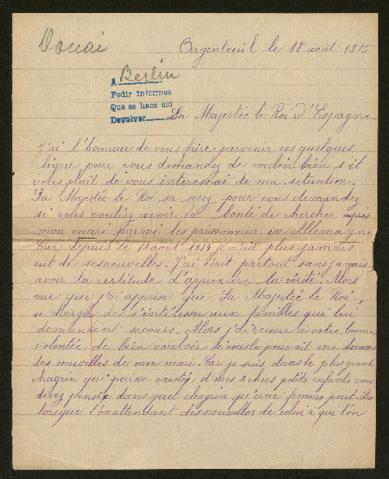 Douai
Argenteuil le 18 août 1915
A Berlin
Pedir informes
Que se hace así
Devolver
Sa Majestée le Roi d'Espagne
J'ai l'honneur de vous faire parvenir ces quelques
ligne pour vous demandez de vouloir bien s'il
vous plait de vous interessai de ma situation.
Sa Majestée le Roi sa
pour vous demandez
si vous vouliez avoir la bonté de chercher
mon mari parmé les prisonniers en Allemagne
Car depuis le
août 1914 je n'ait plus jamais
eut de ses nouvelles. J'ai écrit partout sans jamais
avoir la certitude d'apprener la vérité. Alors
vue que j'ai apprise que Sa Majestée le Roi,
se
des s'intéresser aux familles qui lui
demandent secours. Alors j'ai recour a votre bonne
volontée de bien vouloir
me donner
des nouvelles de mon mari. Car je suis dans le plus grand
chagrin qui puisse
et mes
chers petits enfants vous
devez pensée dans quel chagrin qu'une femme peut être
lorsque l'on attendant des nouvelles de celui a qui l'on